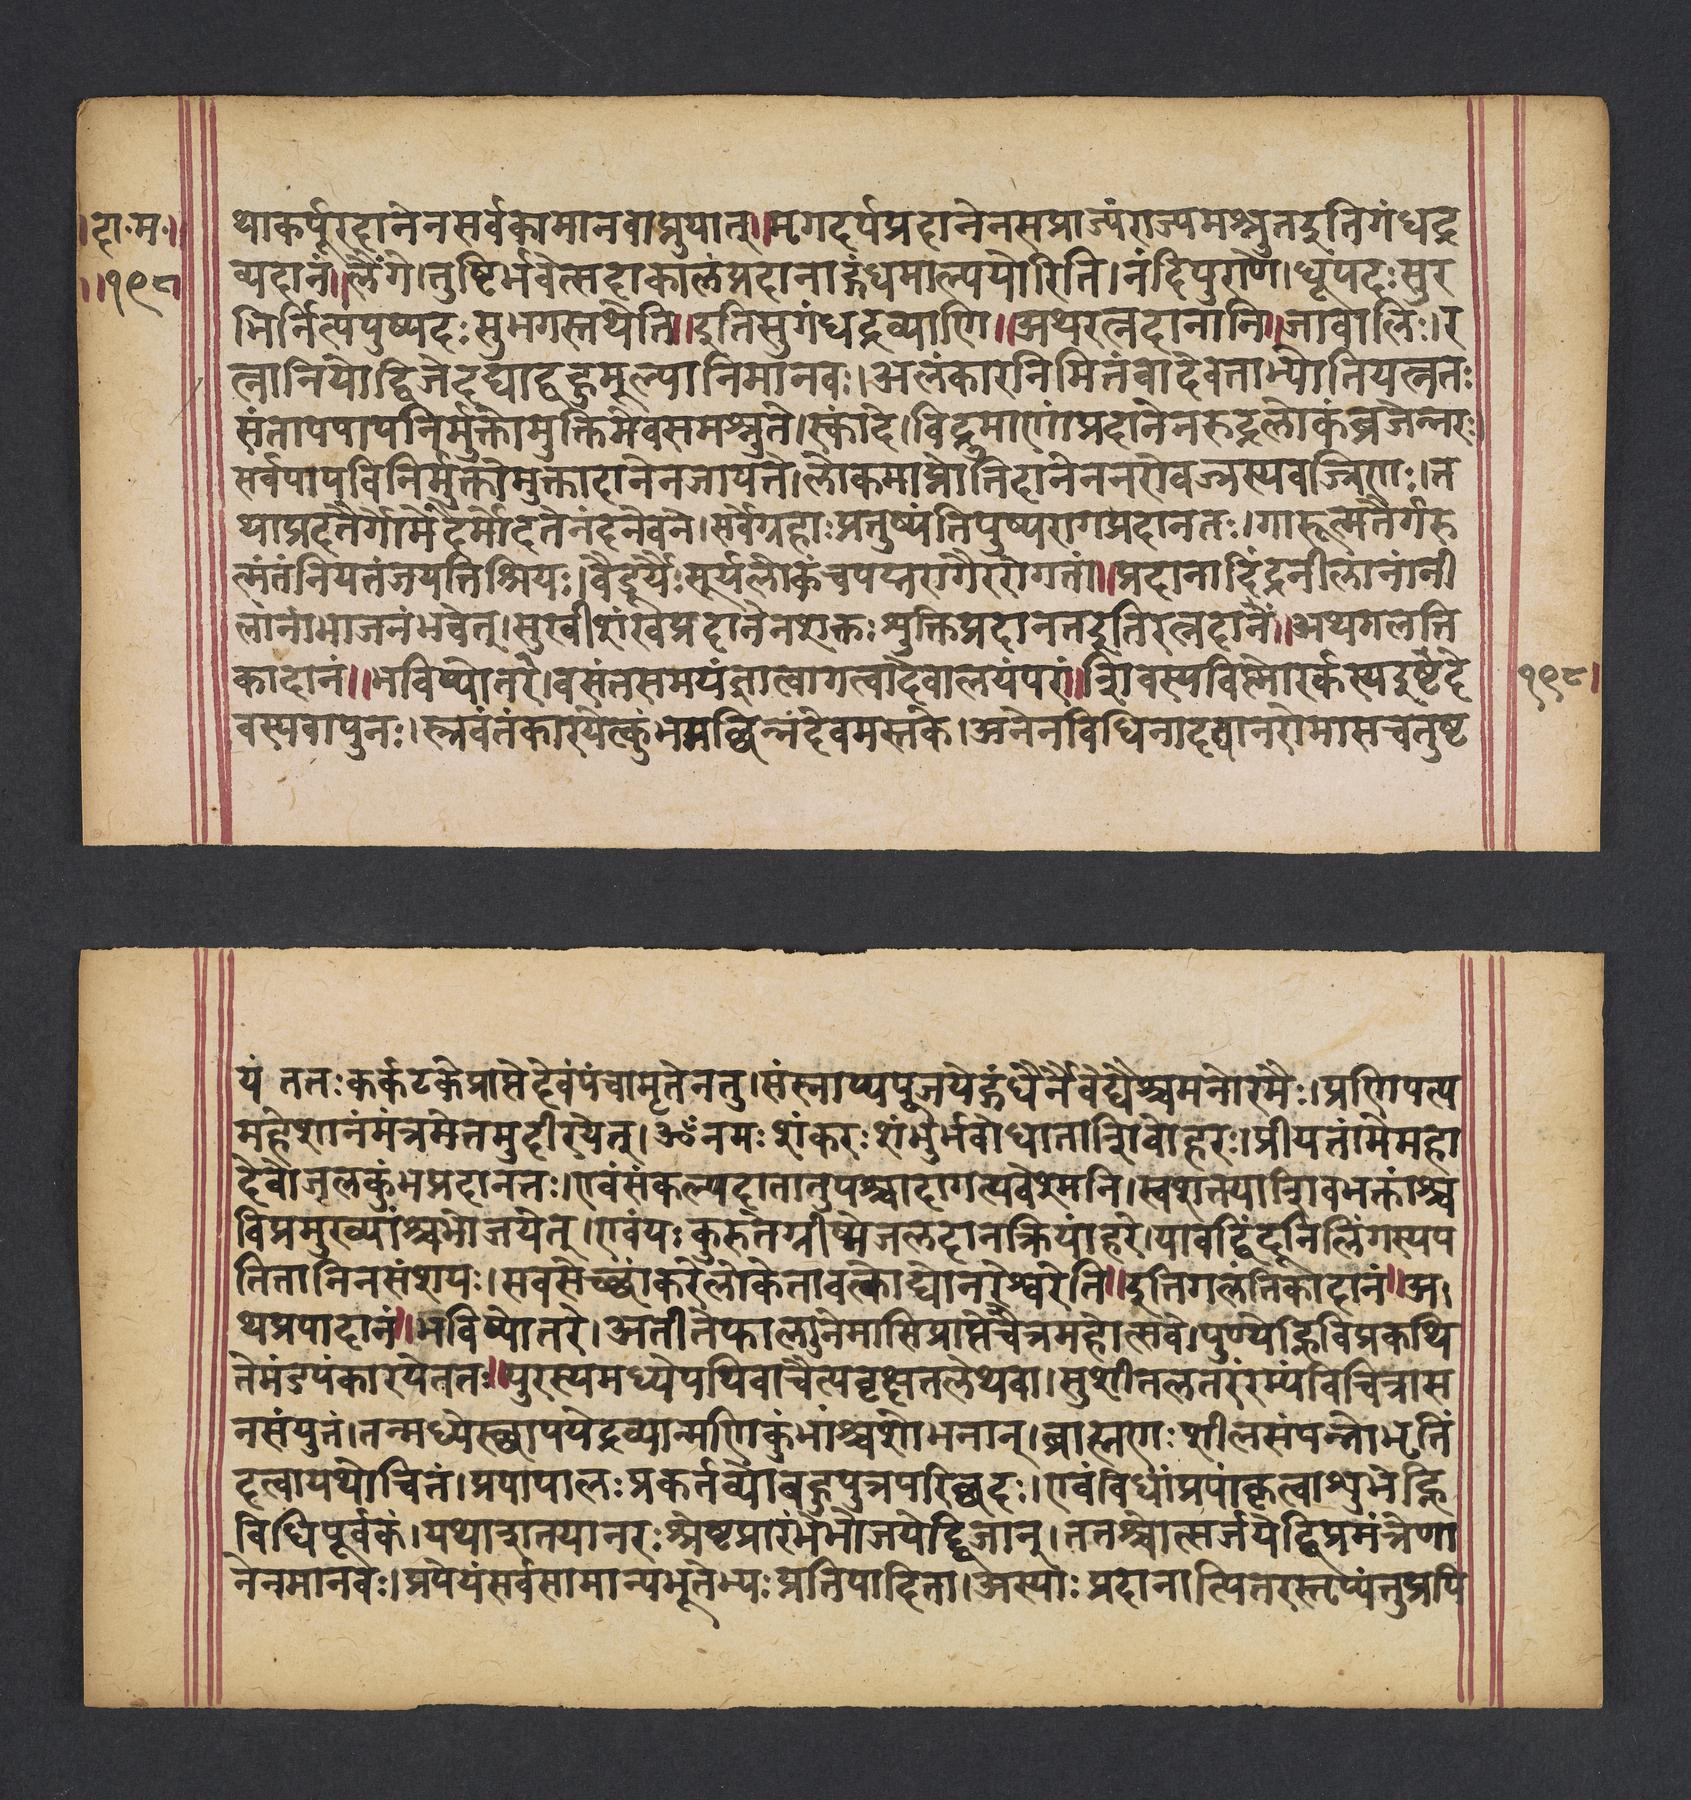 ।दा॰म॰।
॥१९८
थाकर्पूरदानेनसर्वकामानवाप्नुयात्॥मृगदर्पप्रदानेनसप्राज्यंराज्यमश्नुतइतिगंधद्र
व्यदानं॥लैंगे।तुष्टिर्भवेत्सदाकालंप्रदानाद्गंधमाल्ययोरिति।नंदिपुराणे।धूपदःसुर
भिर्नित्यंपुष्पदःसुभगस्तथेति॥इतिसुगंधद्रव्याणि॥अथरत्नदानानि॥जाबालिः।र
त्नानियोद्विजेदद्याद्बहुमूल्यानिमानवः।अलंकारनिमित्तंवादेवताभ्योतियत्नतः
संतापपापनिर्मुक्तोमुक्तिमेवसमश्नुते।स्कांदे।विद्रुमाणांप्रदानेनरुद्रलोकंव्रजेन्नरः
सर्वपापविनिर्मुक्तोमुक्तादानेनजायते।लोकमाप्नोतिदानेननरोवज्रस्यवज्रिणः।त
थाप्रदत्तैर्गोमेदैर्मोदतेनंदनेवने।सर्वेग्रहाःप्रतुष्यंतिपुष्परागप्रदानतः।गारूत्मतैर्गरु
त्मंतंनियतंजयतिश्रियः।वैडूर्यैःसूर्यलोकंचपद्मरागैररोगतां॥प्रदानादिंद्रनीलानांनी
लानांभाजनंभवेत्।सुखीशंखप्रदानेनशक्तःशुक्तिप्रदानतइतिरत्नदानं॥अथगलंति
कादानं॥भविष्योत्तरे।वसंतसमयंज्ञात्वागत्वादेवालयंपरं॥शिवस्यविष्णोरर्कस्यइष्टदे
१९८।
वस्यवापुनः।स्त्रवंतंकारयेत्कुंभमच्छिन्नंदेवमस्तके।अनेनविधिनादद्यान्नरोमासचतुष्ट
यं ततःकर्कटकेप्राप्तेदेवंपंचामृतेनतु।संस्नाप्यपूजयेद्गंधैर्नैवेद्यैश्चमनोरमैः।प्रणिपत्य
महेशानंमंत्रमेतमुदीरयेत्।ॐनमःशंकरःशंभुर्भवोधाताशिवोहरः।प्रीयतांमेमहा
देवोजलकुंभप्रदानतः।एवंसंकल्प्यदातातुपश्चादागत्यवेश्मनि।स्वशक्तयाशिवभक्तांश्च
विप्रमुख्यांश्चभोजयेत्।एवंयःकुरुतेग्रीष्मेजलदानक्रियांहरे।यावद्बिंदूनिलिंगस्यप
तितानिनसंशयः।सवसेच्छांकरेलोकेतावत्कोद्योनरेश्वरेति॥इतिगलंतिकादानं॥अ।
थप्रपादानं॥भविष्योत्तरे।अतीतेफाल्गुनेमासिप्राप्तेचैत्रमहोत्सवे।पुण्येह्निविप्रकथि
तेमंडपंकारयेततः॥पुरस्यमध्येपथिवाचैत्यवृक्षतलेथवा।सुशीतलतरंरम्यंविचित्रास
नसंयुतं।तन्मध्येस्थापयेद्रव्यान्मणिकुंभांश्चशोभनान्।ब्राह्मणःशीलसंपन्नोभृतिं
दत्वायथोचितं।प्रपापालःप्रकर्तव्योबहुपुत्रपरिच्छदः।एवंविधांप्रपांकृत्वाशुभेह्नि
विधिपूर्वकं।यथाशक्तयानरःश्रेष्टप्रारंभेभोजयेद्द्विजान्।ततश्चोत्सर्जयेद्विप्रमंत्रेणा
नेनमानवः।प्रपेयंसर्वसामान्यभूतेभ्यःप्रतिपादिता।अस्याःप्रदानात्पितरस्तृप्यंतुप्रपि